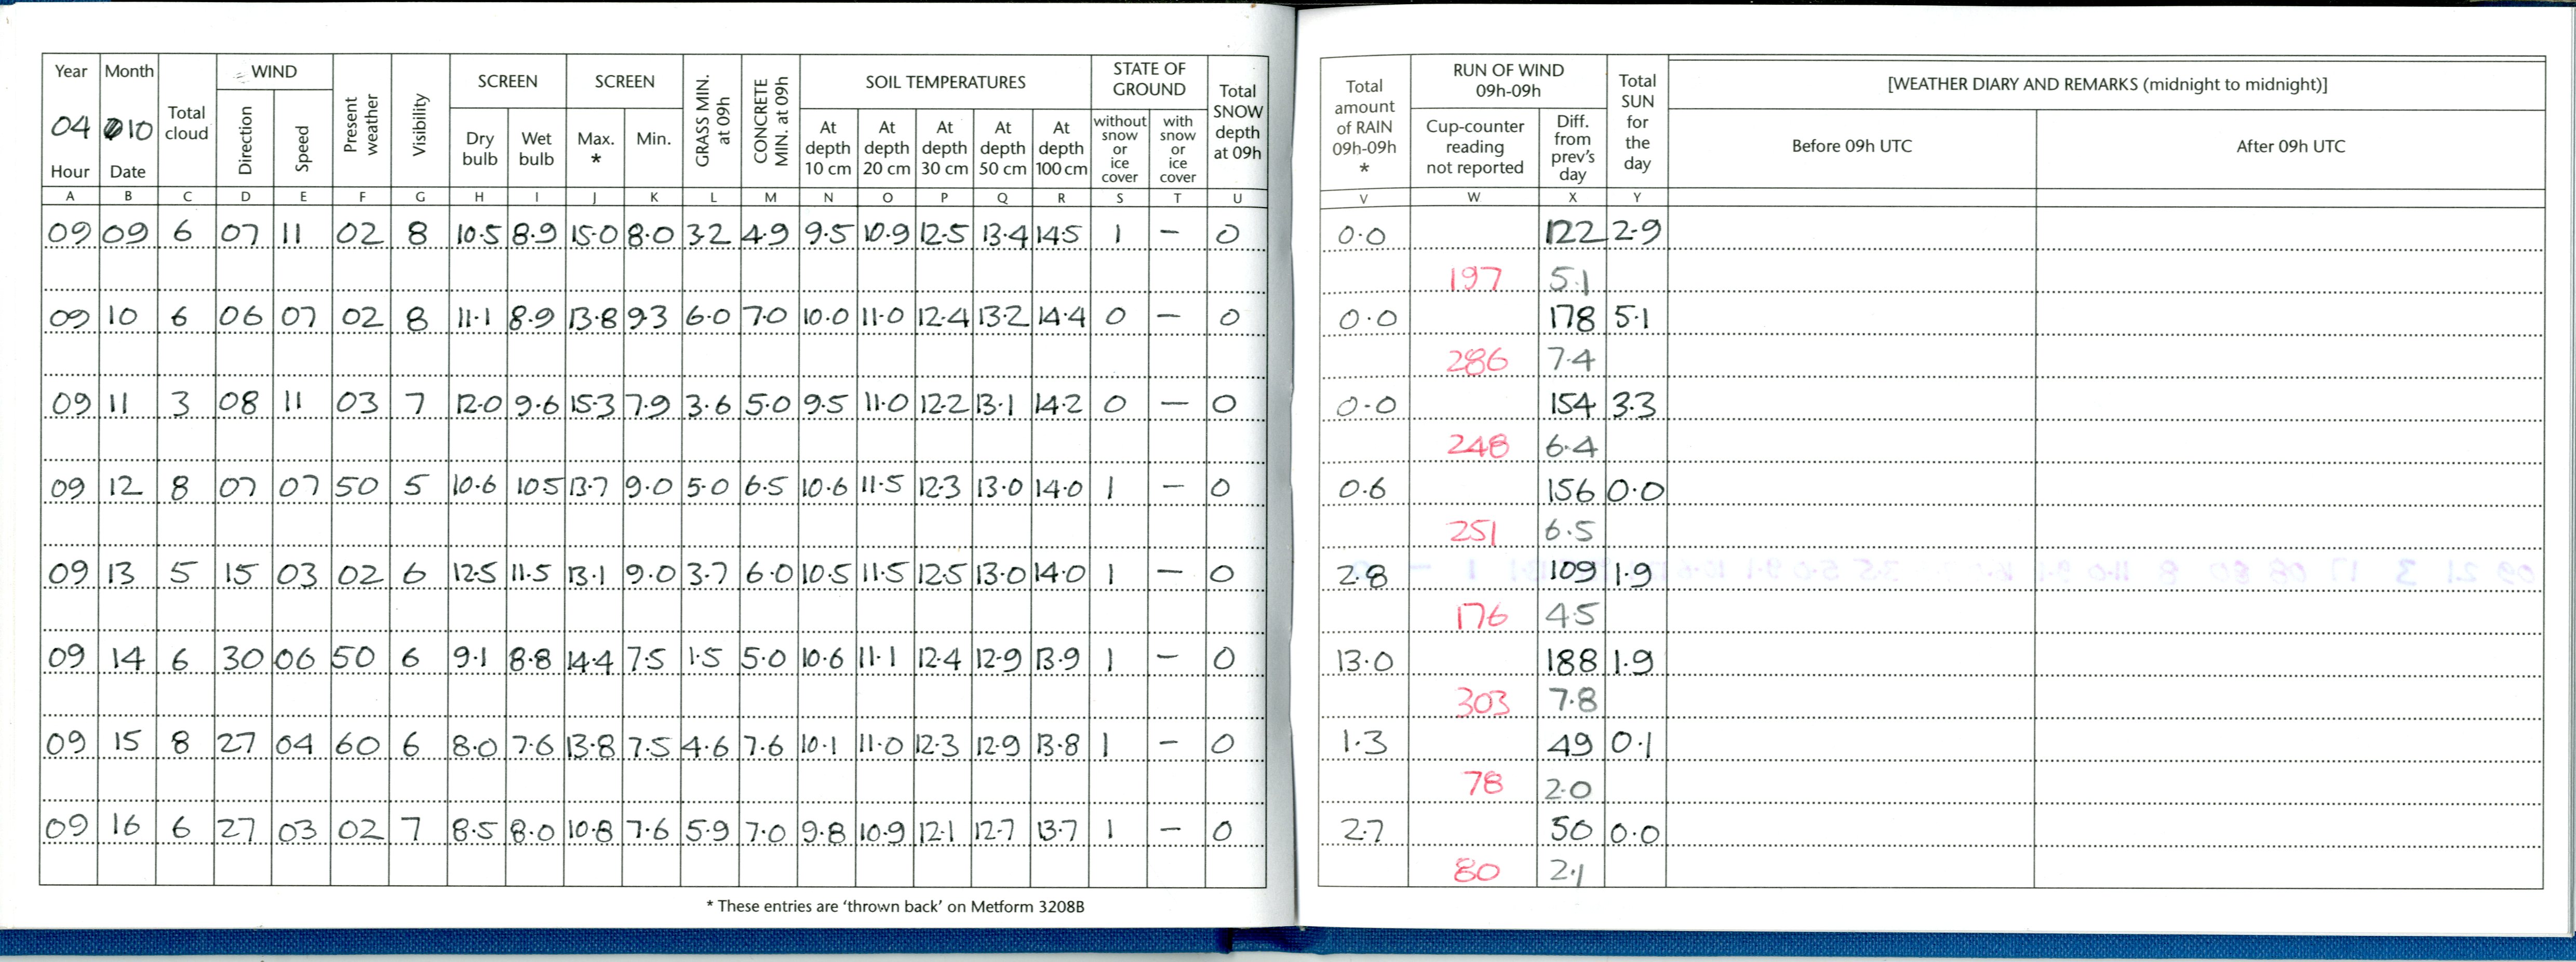 Year Month Total cloud WIND Present weather Visibility SCREEN SCREEN GRASS MIN. at 09h CONCRETE MIN. at 09h SOIL TEMPERATURES STATE OF GROUND Total SNOW depth at 09h Total amount of RAIN 09h-09h * RUN OF WIND 09h-09h Total SUN for the day [WEATHER DIARY AND REMARKS (midnight to midnight)]
04 10 Direction Speed Dry bulb Wet bulb Max. * Min. At depth 10 cm At depth 20 cm At depth 30 cm At depth 50 cm At depth 100 cm without snow or ice cover with snow or ice cover Cup-counter reading not reported Diff. from prev's day Before 09h UTC After 09h UTC
Hour Date
A B C D E F G H I J K L M N O P Q R S T U V W X Y
09 09 6 07 11 02 8 10.5 8.9 15.0 8.0 3.2 4.9 9.5 10.9 12.5 13.4 14.5 1 – 0 0.0 122 2.9
197 5.1
09 10 6 06 07 02 8 11.1 8.9 13.8 9.3 6.0 7.0 10.0 11.0 12.4 13.2 14.4 0 – 0 0.0 178 5.1
286 7.4
09 11 3 08 11 03 7 12.0 9.6 15.3 7.9 3.6 5.0 9.5 11.0 12.2 13.1 14.2 0 – 0 0.0 154 3.3
248 6.4
09 12 8 07 07 50 5 10.6 10.5 13.7 9.0 5.0 6.5 10.6 11.5 12.3 13.0 14.0 1 – 0 0.6 156 0.0
251 6.5
09 13 5 15 03 02 6 12.5 11.5 13.1 9.0 3.7 6.0 10.5 11.5 12.5 13.0 14.0 1 – 0 2.8 109 1.9
176 4.5
09 14 6 30 06 50 6 9.1 8.8 14.4 7.5 1.5 5.0 10.6 11.1 12.4 12.9 13.9 1 – 0 13.0 188 1.9
303 7.8
09 15 8 27 04 60 6 8.0 7.6 13.8 7.5 4.6 7.6 10.1 11.0 12.3 12.9 13.8 1 – 0 1.3 49 0.1
78 2.0
09 16 6 27 03 02 7 8.5 8.0 10.8 7.6 5.9 7.0 9.8 10.9 12.1 12.7 13.7 1 – 0 2.7 50 0.0
80 2.1
* These entries are 'thrown back' on Metform 3208B